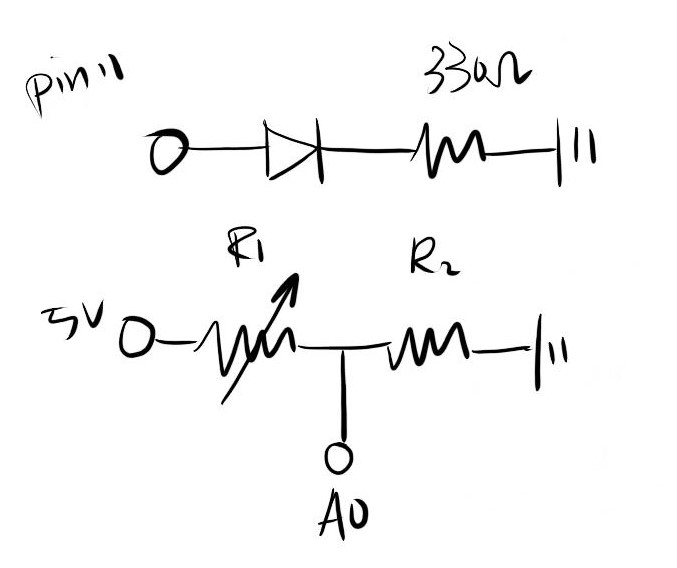 pin 11
330Ω
R1
R2
5V
A0